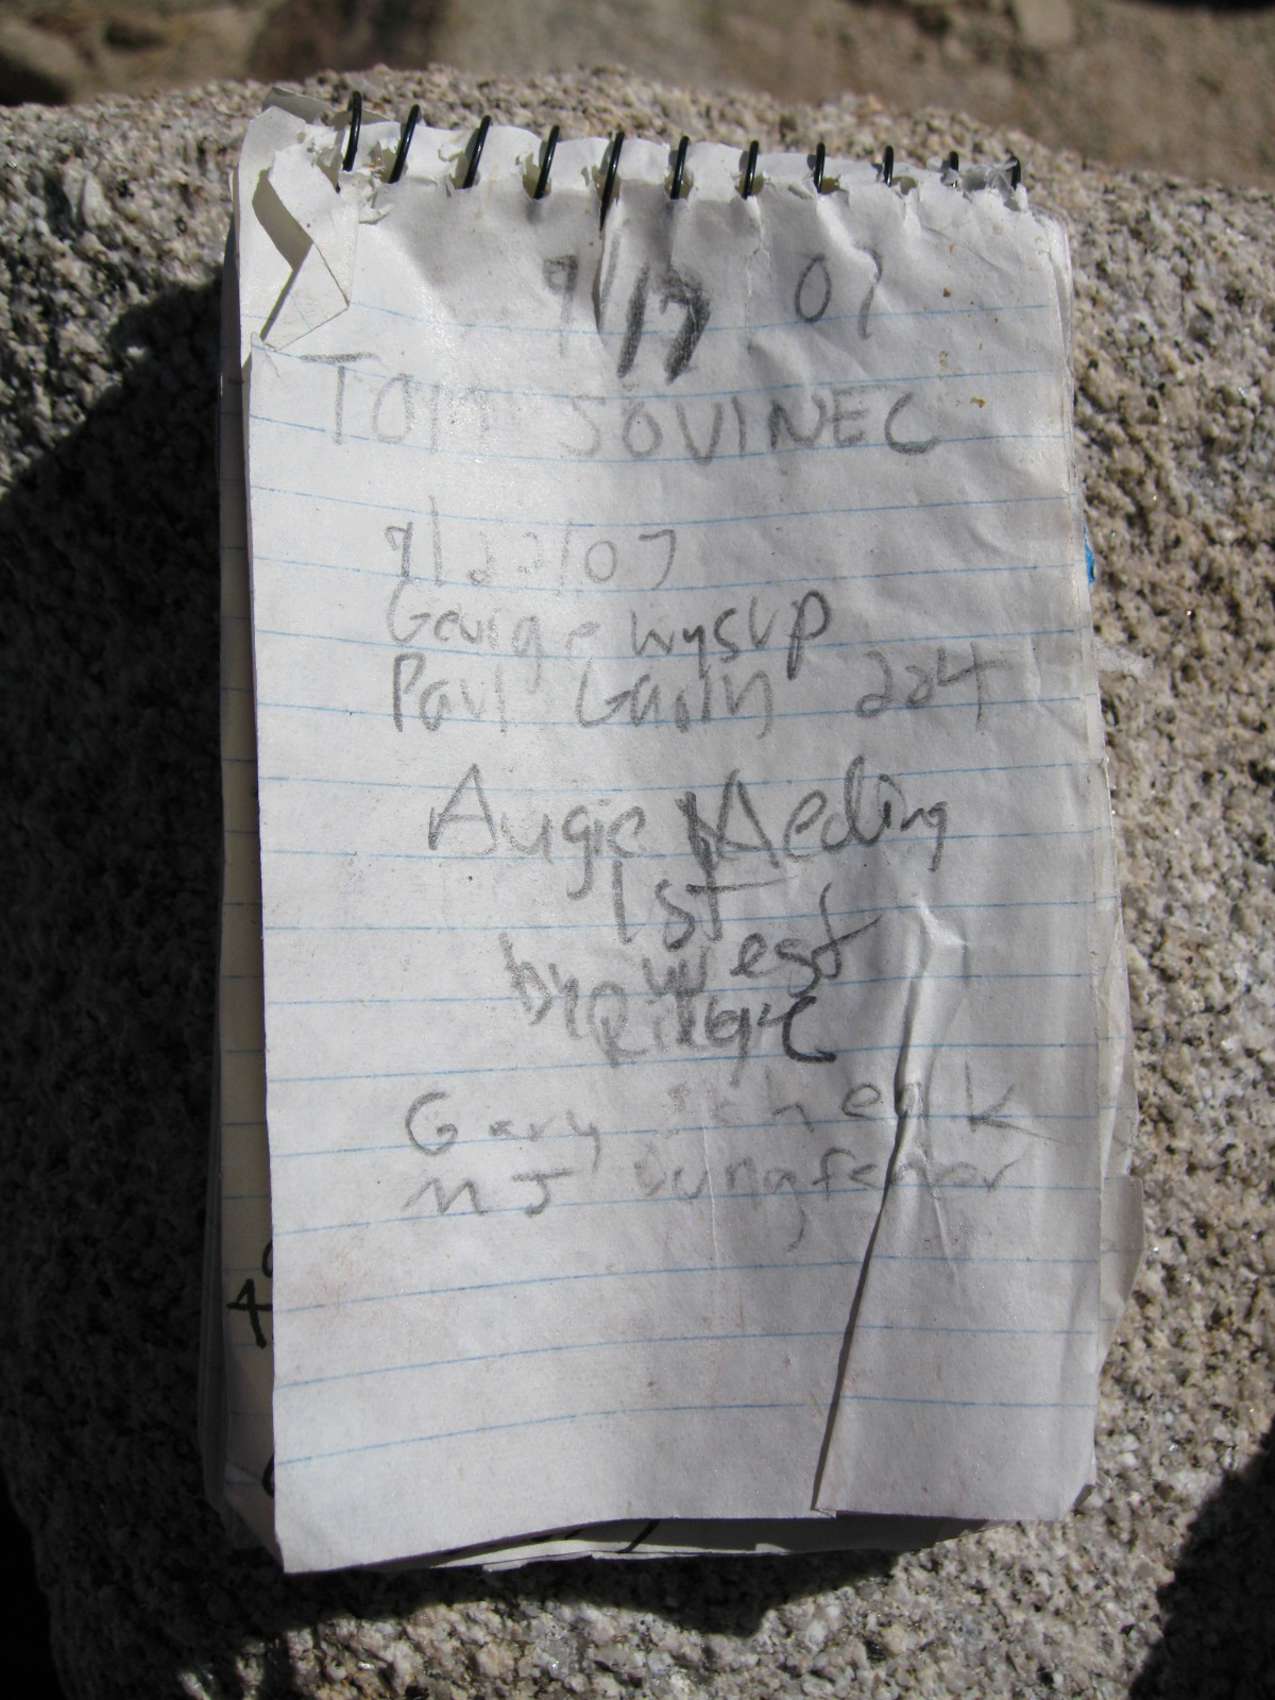 9/17 07
TOM SOVINEC
9/22/07
George Wysup
Paul 224
Augie Medling
1st
by West
Ridge
Gary Schenk
MJ Dungfehor